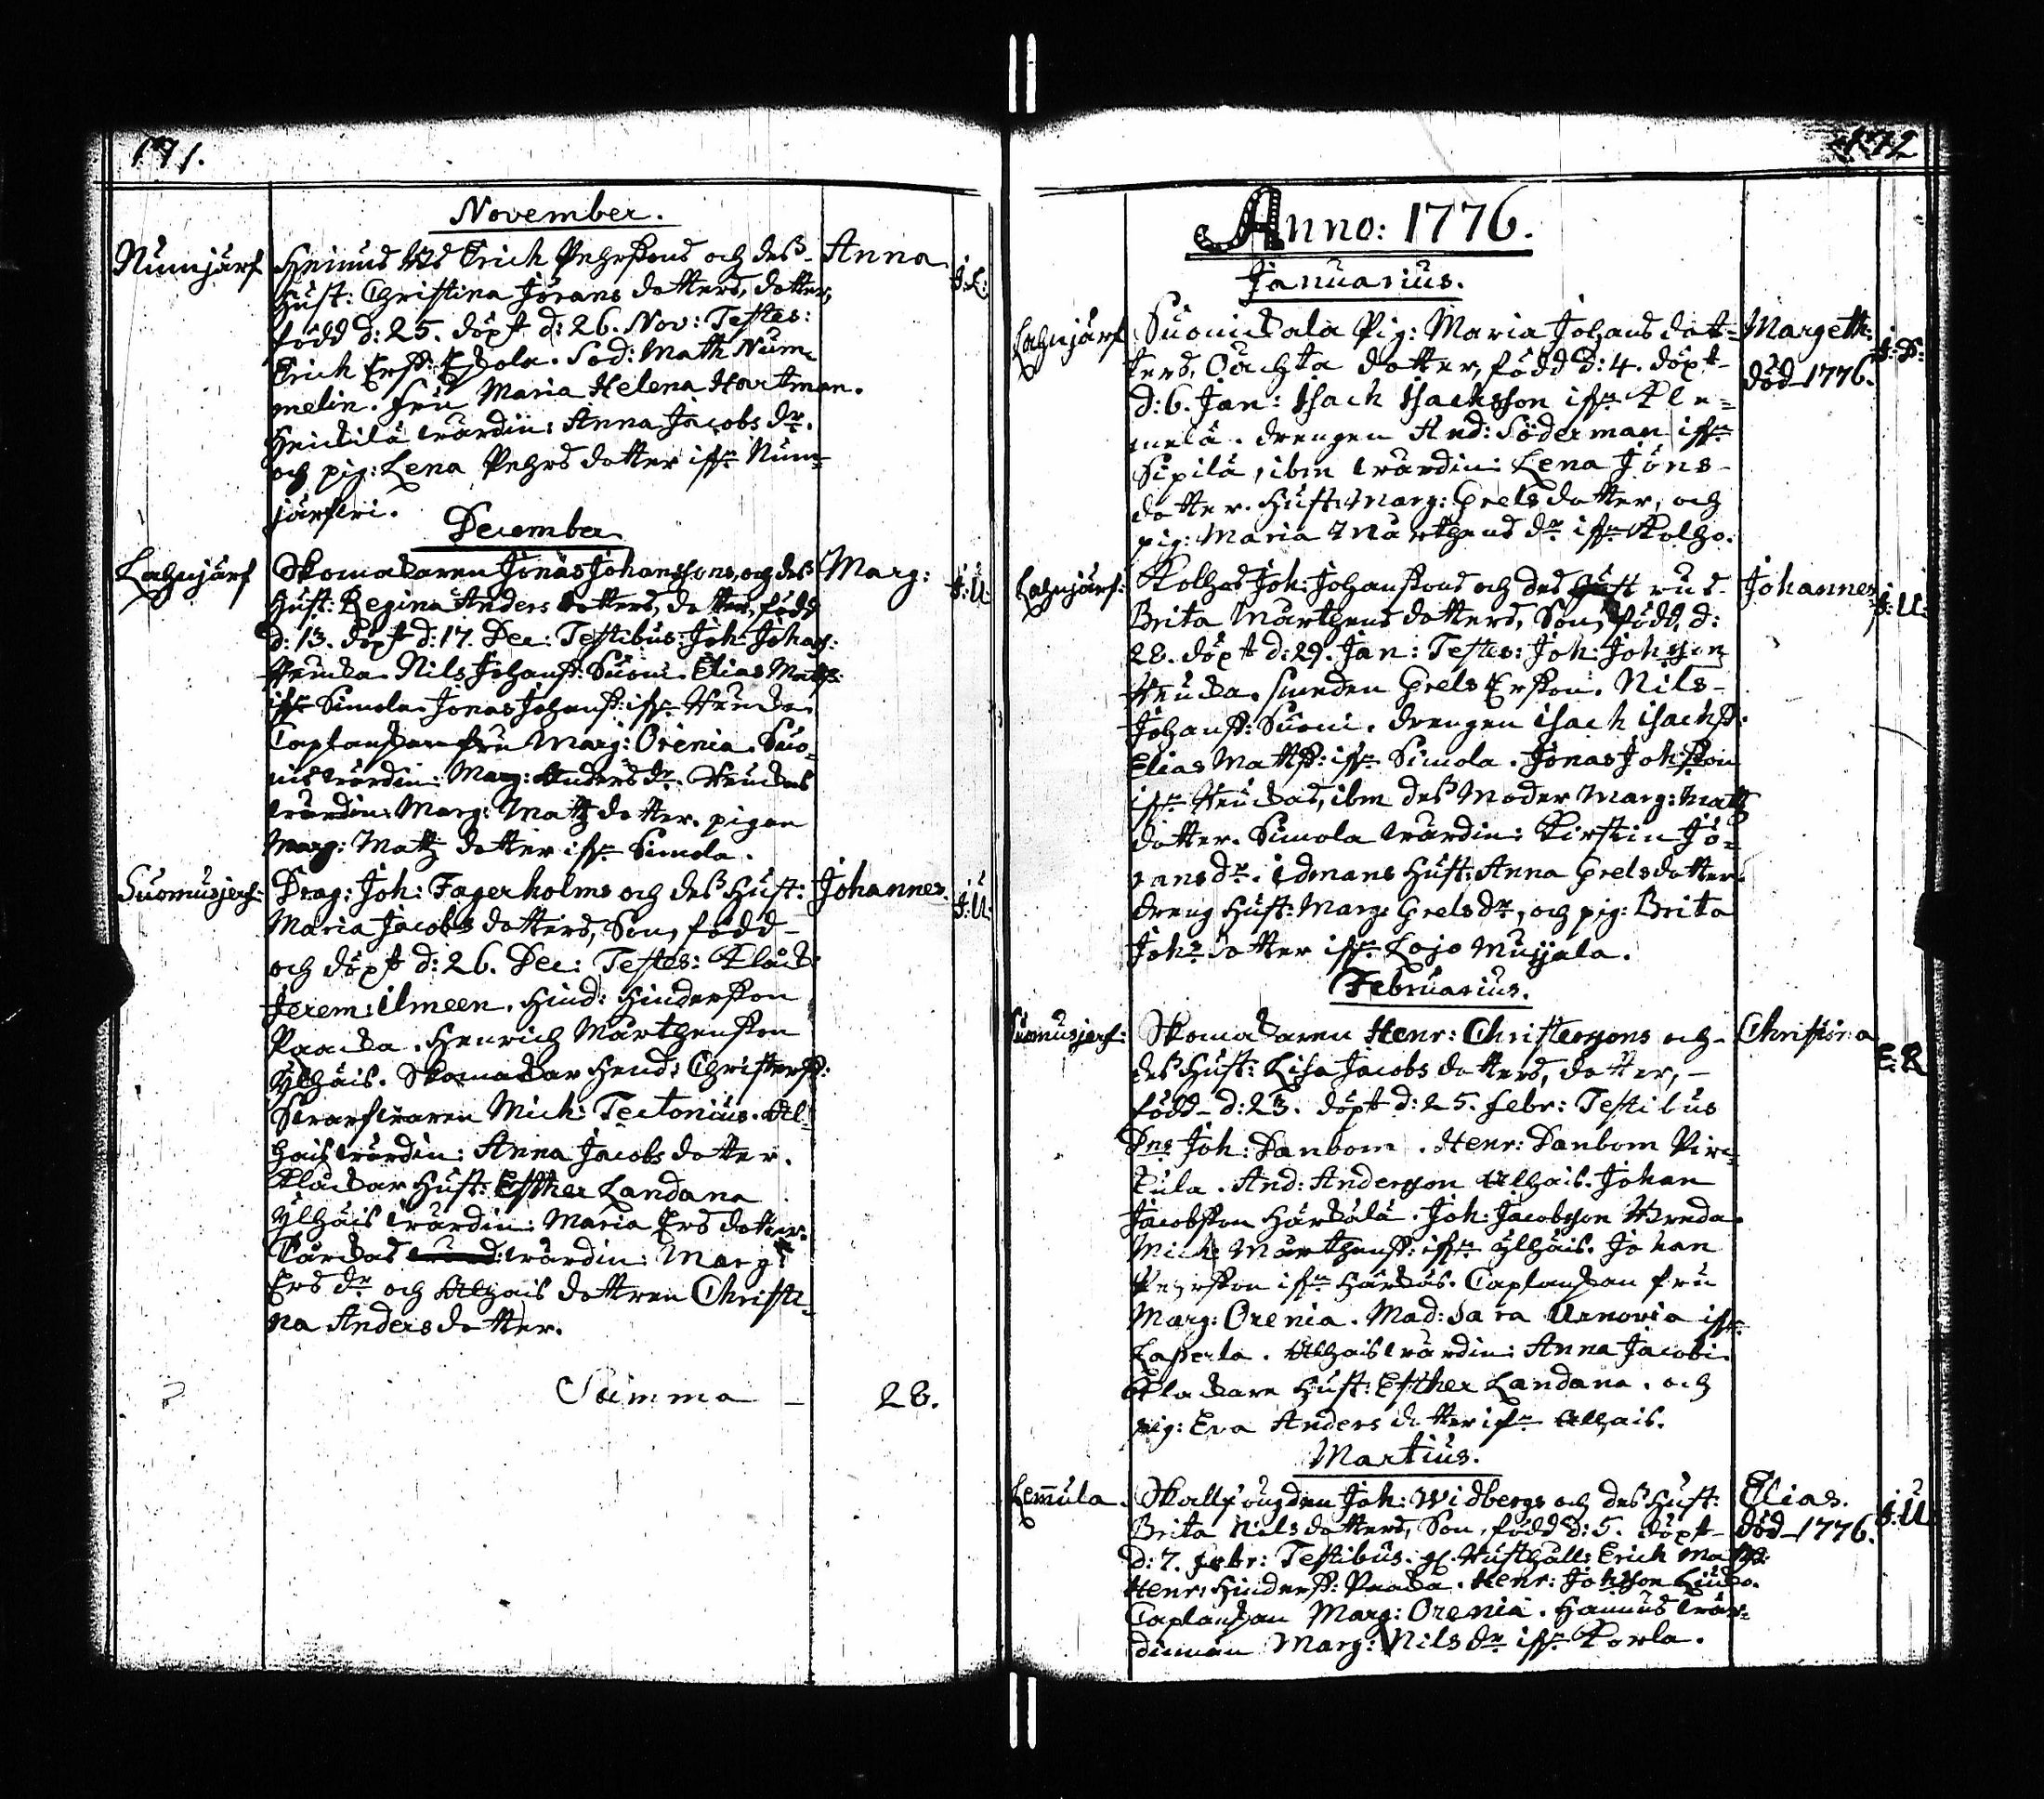 171.
November.
Numjärf
Heinus Erich Pehrssons och dess
Anna
J:L:
Hust: Christina Jörans dotters, dotter,
född d: 25. döpt d: 26. Nov: Testes:
Erich Ersß: Eskola. Sod: Math Num-
melin. Fru Maria Helena Hartman.
Heickilä wärdin: Anna Jacobs dr.
och pig: Lena Pehrs dotter ifrn Num-
järfwi.
December
Lahnjärf
Skomakaren Jonas Johanssons, och dess
Marg:
J:U:
Hust: Regina Anders dotters, dotter, född
d: 13. döpt d: 17. Dec: Testibus: Joh: Johanß:
Heucka. Nils Johanß: Suoni. Elias Matß:
ifrn Simola. Jonas Johanß: ifrn Heucka
Caplanskan fru Marg: Orenia. Suo-
nis wärdin: Marg: Anders dr. Heuckas
wärdin: Marg: Matz dotter. pigan
Marg: Matz dotter ifrn Simola.
Suomusjerf:
Drag: Joh: Fagerholms och dess Hust:
Johannes.
J:U:
Maria Jacobs dotters, Son, född
och döpt d: 26. Dec: Testes: Klock:
Jerem: Ilmeen. Hind: Hindersson
Paacka. Henrich Mårthensson
Ylhäis. Skomakar Hend: Christersß:
Mich: Tectonius. Al-
hais wärdin: Anna Jacobs dotter.
Klåckar Hust: Esther Landana
Ylhäis wärdin: Maria Ers dotter.
Kärckas wärdin: Marg:
Ers dr och Alhais dottren Christi-
na Anders dotter.
Summa – 28.
172
Anno: 1776.
Januarius.
Lahnjärf
Suonickala Pig: Maria Johans dot-
Margeth:
J:D:
ters, Oächta dotter, född d: 4. döpt
död 1776.
d: 6. Jan: Isach Isachsson ifrn Kle-
melä. drengen And: Söderman ifrn
Sipilä, ibm wärdin: Lena Jöns
dotter. Hust: Marg: Grels dotter, och
pig: Maria Mårthens dr ifrn Kolho.
Lahnjärf:
Kolhos Joh: Johanssons och des hustrus
Johannes
J:U:
Brita Mårthens dotters, Son, född, d:
28. döpt d: 29. Jan: Testes: Joh: Johsson
Heucka. smeden Grels Ersson. Nils
Johanß: Suoni. drengen Isach Isachß:
Elias Matß: ifrn Simola. Jonas Johsson
ifrn Heuckas, ibm dess Moder Marg: Matz
dotter. Simola wärdin: Kirstin Jö-
rans dr. Idmans Hust: Anna Grels dotter.
dreng Hust: Marg: Grels dr, och pig: Brita
Johs dotter ifrn Lojo Muijala.
Februarius.
Suomusjerf:
Skomakaren Henr: Christerssons och
Christina
E:R
dess Hust: Lisa Jacobs dotters, dotter,
född d: 23. döpt d: 25. febr: Testibus
Dns Joh: Danbom. Henr: Danbom Pir-
kula. And: Andersson Alhais. Johan
Jacobsson Härkälä. Joh: Jacobsson
Mich: Mårthensß: ifrn Ylhäis. Johan
Pehrsson ifrn Härkäs. Caplanskan fru
Marg: Orenia. Mad: Sara Urnovia ifrn
Laperla. Alhais wärdin: Anna Jacobi
Klackare Hust: Esther Landana. och
pig: Eva Anders dotter ifrn Alhais.
Martius.
Lem̅ula.
Skallfougden Joh: Widbergs och dess Hust:
Elias.
J:U
Brita Nils dotters, Son, född d: 5. döpt
död 1776.
d: 7. febr: Testibus: Erich Matß:
Henr: Hindersß: Paacka. Henr: Johsson
Caplanskan Marg: Orenia. Hannus wär-
dinnan Marg: Nils dr ifrn Korla.